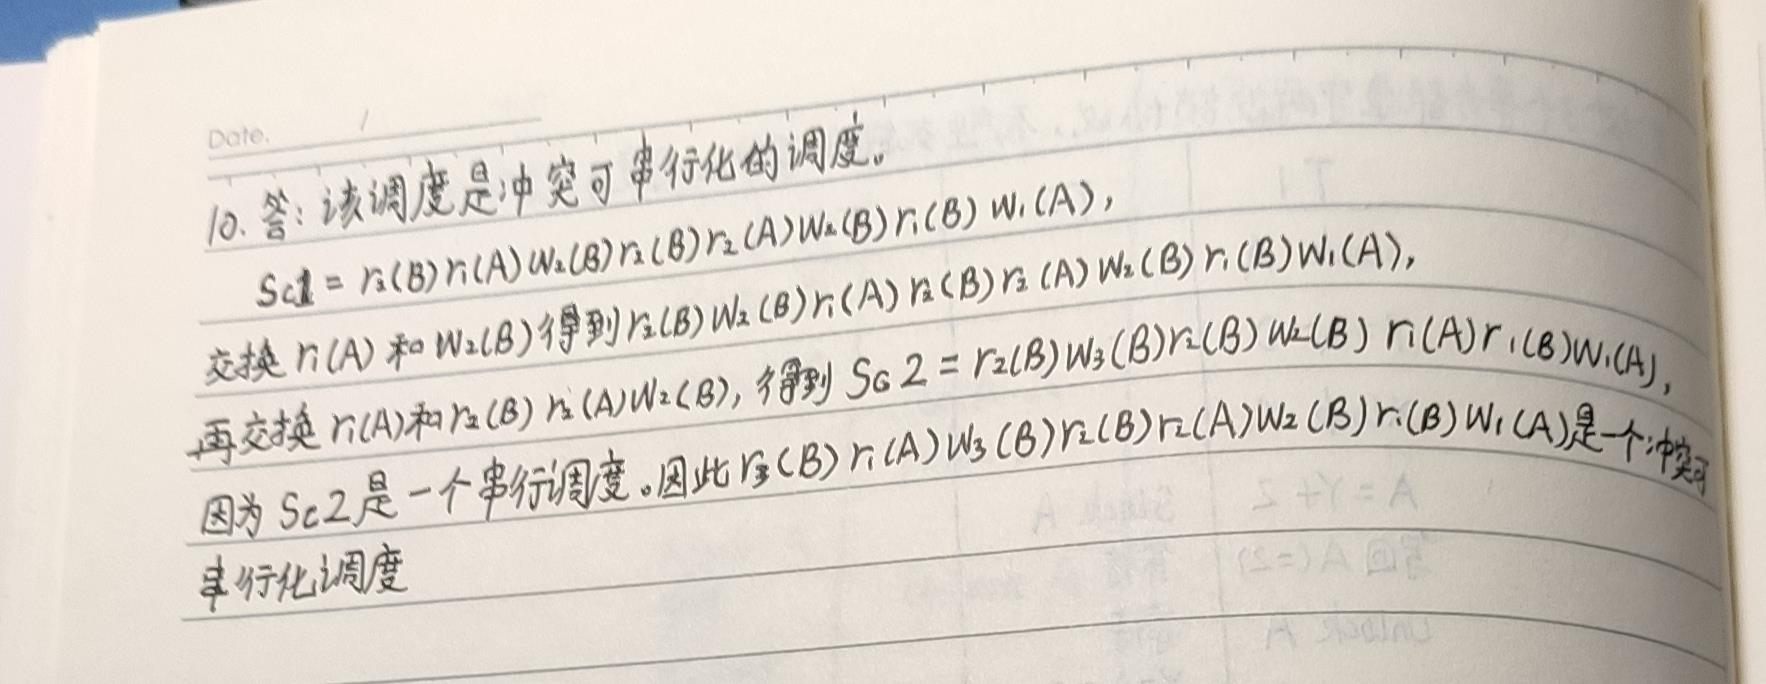 Date. /
10. 答：该调度是冲突可串行化的调度。
Sc1 = r₃(B) r₁(A) W₂(B) r₂(B) r₂(A) W₂(B) r₁(B) W₁(A),
交换 r₁(A) 和 W₂(B) 得到 r₂(B) W₂(B) r₁(A) r₂(B) r₂(A) W₂(B) r₁(B) W₁(A),
再交换 r₁(A) 和 r₂(B) r₂(A) W₂(B), 得到 Sc2 = r₂(B) W₃(B) r₂(B) W₂(B) r₁(A) r₁(B) W₁(A),
因为 Sc2 是一个串行调度。因此 r₃(B) r₁(A) W₃(B) r₂(B) r₂(A) W₂(B) r₁(B) W₁(A) 是一个冲突可
串行化调度